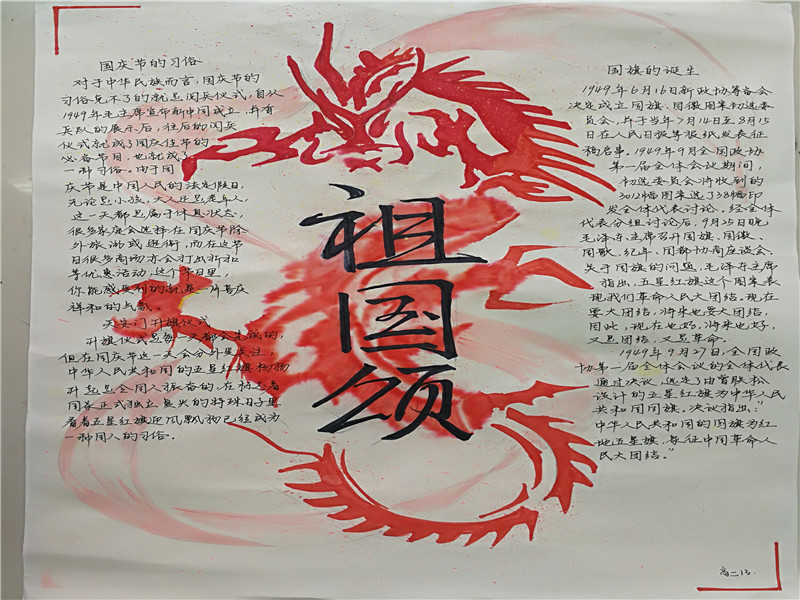 国庆节的习俗
对于中华民族而言,国庆节的
习俗免不了的就是阅兵仪式,自从
1949年毛主席宣布新中国成立,并有
兵队的展示后,往后的阅兵
仪式就成了国庆佳节的
必备节目,也就成了
一种习俗。由于国
庆节是中国人民的法定假日,
无论是小孩,大人还是老年人,
这一天都是属于休息状态,
很多家庭会选择在国庆节除
外旅游或逛街,而在这节
日很多商场亦会打出折扣
等优惠活动,这个节日里,
你能感受到的就是一片喜庆
祥和的气氛
天安门升旗仪式
升旗仪式是每一天都会生成的,
但在国庆节这一天会分外受关注,
中华人民共和国的五星红旗杨杨
升起是全国人振奋的,在标志着
国家正式独立复兴的特殊日子里
看着五星红旗迎风飘扬已经成为
一种国人的习俗。
祖国颂
国旗的诞生
1949年6月16日新政协筹备会
决定成立国旗、国徽图案初选委
员会,并于当年7月14日至8月15
日在人民日报等报纸发表征
稿启事。1949年9月全国政协
第一届全体会议期间,
初选委员会将收到的
3012幅图案选了38幅印
发全体代表讨论。经全体
代表分组讨论后,9月25日晚
毛泽东主席召开国旗、国徽、
国歌、纪年、国都协商座谈会、
关于国旗的问题,毛泽东主席
指出,五星红旗这个图案表
现我们革命人民大团结。现在
要大团结,将来也要大团结,
因此,现在也好,将来也好,
又是团结,又是革命。
1949年9月27日,全国政
协第一届全体会议的全体代表
通过决议,选定了由曾联松
设计的五星红旗为中华人民
共和国国旗。决议指出:"
中华人民共和国的国旗为红
地五星旗,象征中国革命人
民大团结。"
高二13.